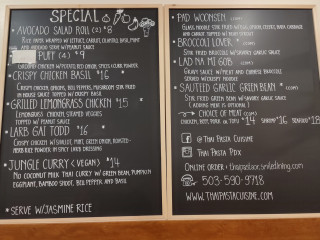 SPECIAL
• AVOCADO SALAD ROLL (2) $8
RICE PAPER WRAPPED W/ LETTUCE, CARROT, CILANTRO, BASIL, MINT
AND AVOCADO SERVE W/ PEANUT SAUCE
PUFF (4) $5
GROUND CHICKEN W/ POTATO, RED ONION, SPICES CURRY POWDER.
• CRISPY CHICKEN BASIL $16 *
CRISPY CHICKEN, ONIONS, BELL PEPPERS, MUSHROOM STIR FRIED
IN HOUSE SAUCE. TOPPED W/ CRISPY BASIL
• GRILLED LEMONGRASS CHICKEN $15 *
LEMONGRASS CHICKEN, STEAMED VEGGIES
TOPPED W/ PEANUT SAUCE
• LARB GAI TODD $16 *
CRISPY CHICKEN W/ SHALLOT, MINT, GREEN ONION, ROASTED-
HERB RICE POWDER IN SPICY LIME DRESSING
• JUNGLE CURRY (VEGAN) $14
NO COCONUT MILK THAI CURRY W/ GREEN BEAN, PUMPKIN
EGGPLANT, BAMBOO SHOOT, BELL PEPPER AND BASIL
* SERVE W/ JASMINE RICE
• PAD WOONSEN
GLASS NOODLE STIR FRIED W/ EGG, ONION, CELERY, NAPA CABBAGE
AND CARROT TOPPED W/ BEAN SPROUT
• BROCCOLI LOVER *
STIR FRIED BROCCOLI W/ SAVORY GARLIC SAUCE
• LAD NA MI GOB
GRAVY SAUCE W/ MEAT AND CHINESE BROCCOLI
SERVED W/ CRISPY NOODLE
• SAUTEED GARLIC GREEN BEAN *
STIR FRIED GREEN BEAN W/ SAVORY GARLIC SAUCE
(GROUND MEAT IS OPTIONAL)
CHOICE OF MEAT
CHICKEN, BEEF, PORK OR TOFU $14 SHRIMP $16 SEAFOOD $18
@ THAI PASTA CUISINE
THAI PASTA PDX
ONLINE ORDER:
503-590-9718
WWW.THAIPASTACUISINE.COM